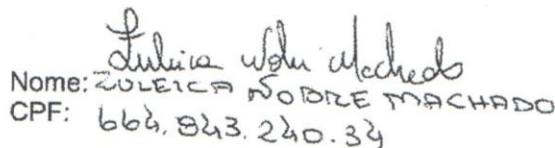 Zuleica Nobre Machado
Nome: ZULEICA NOBRE MACHADO
CPF: 664.843.240.34